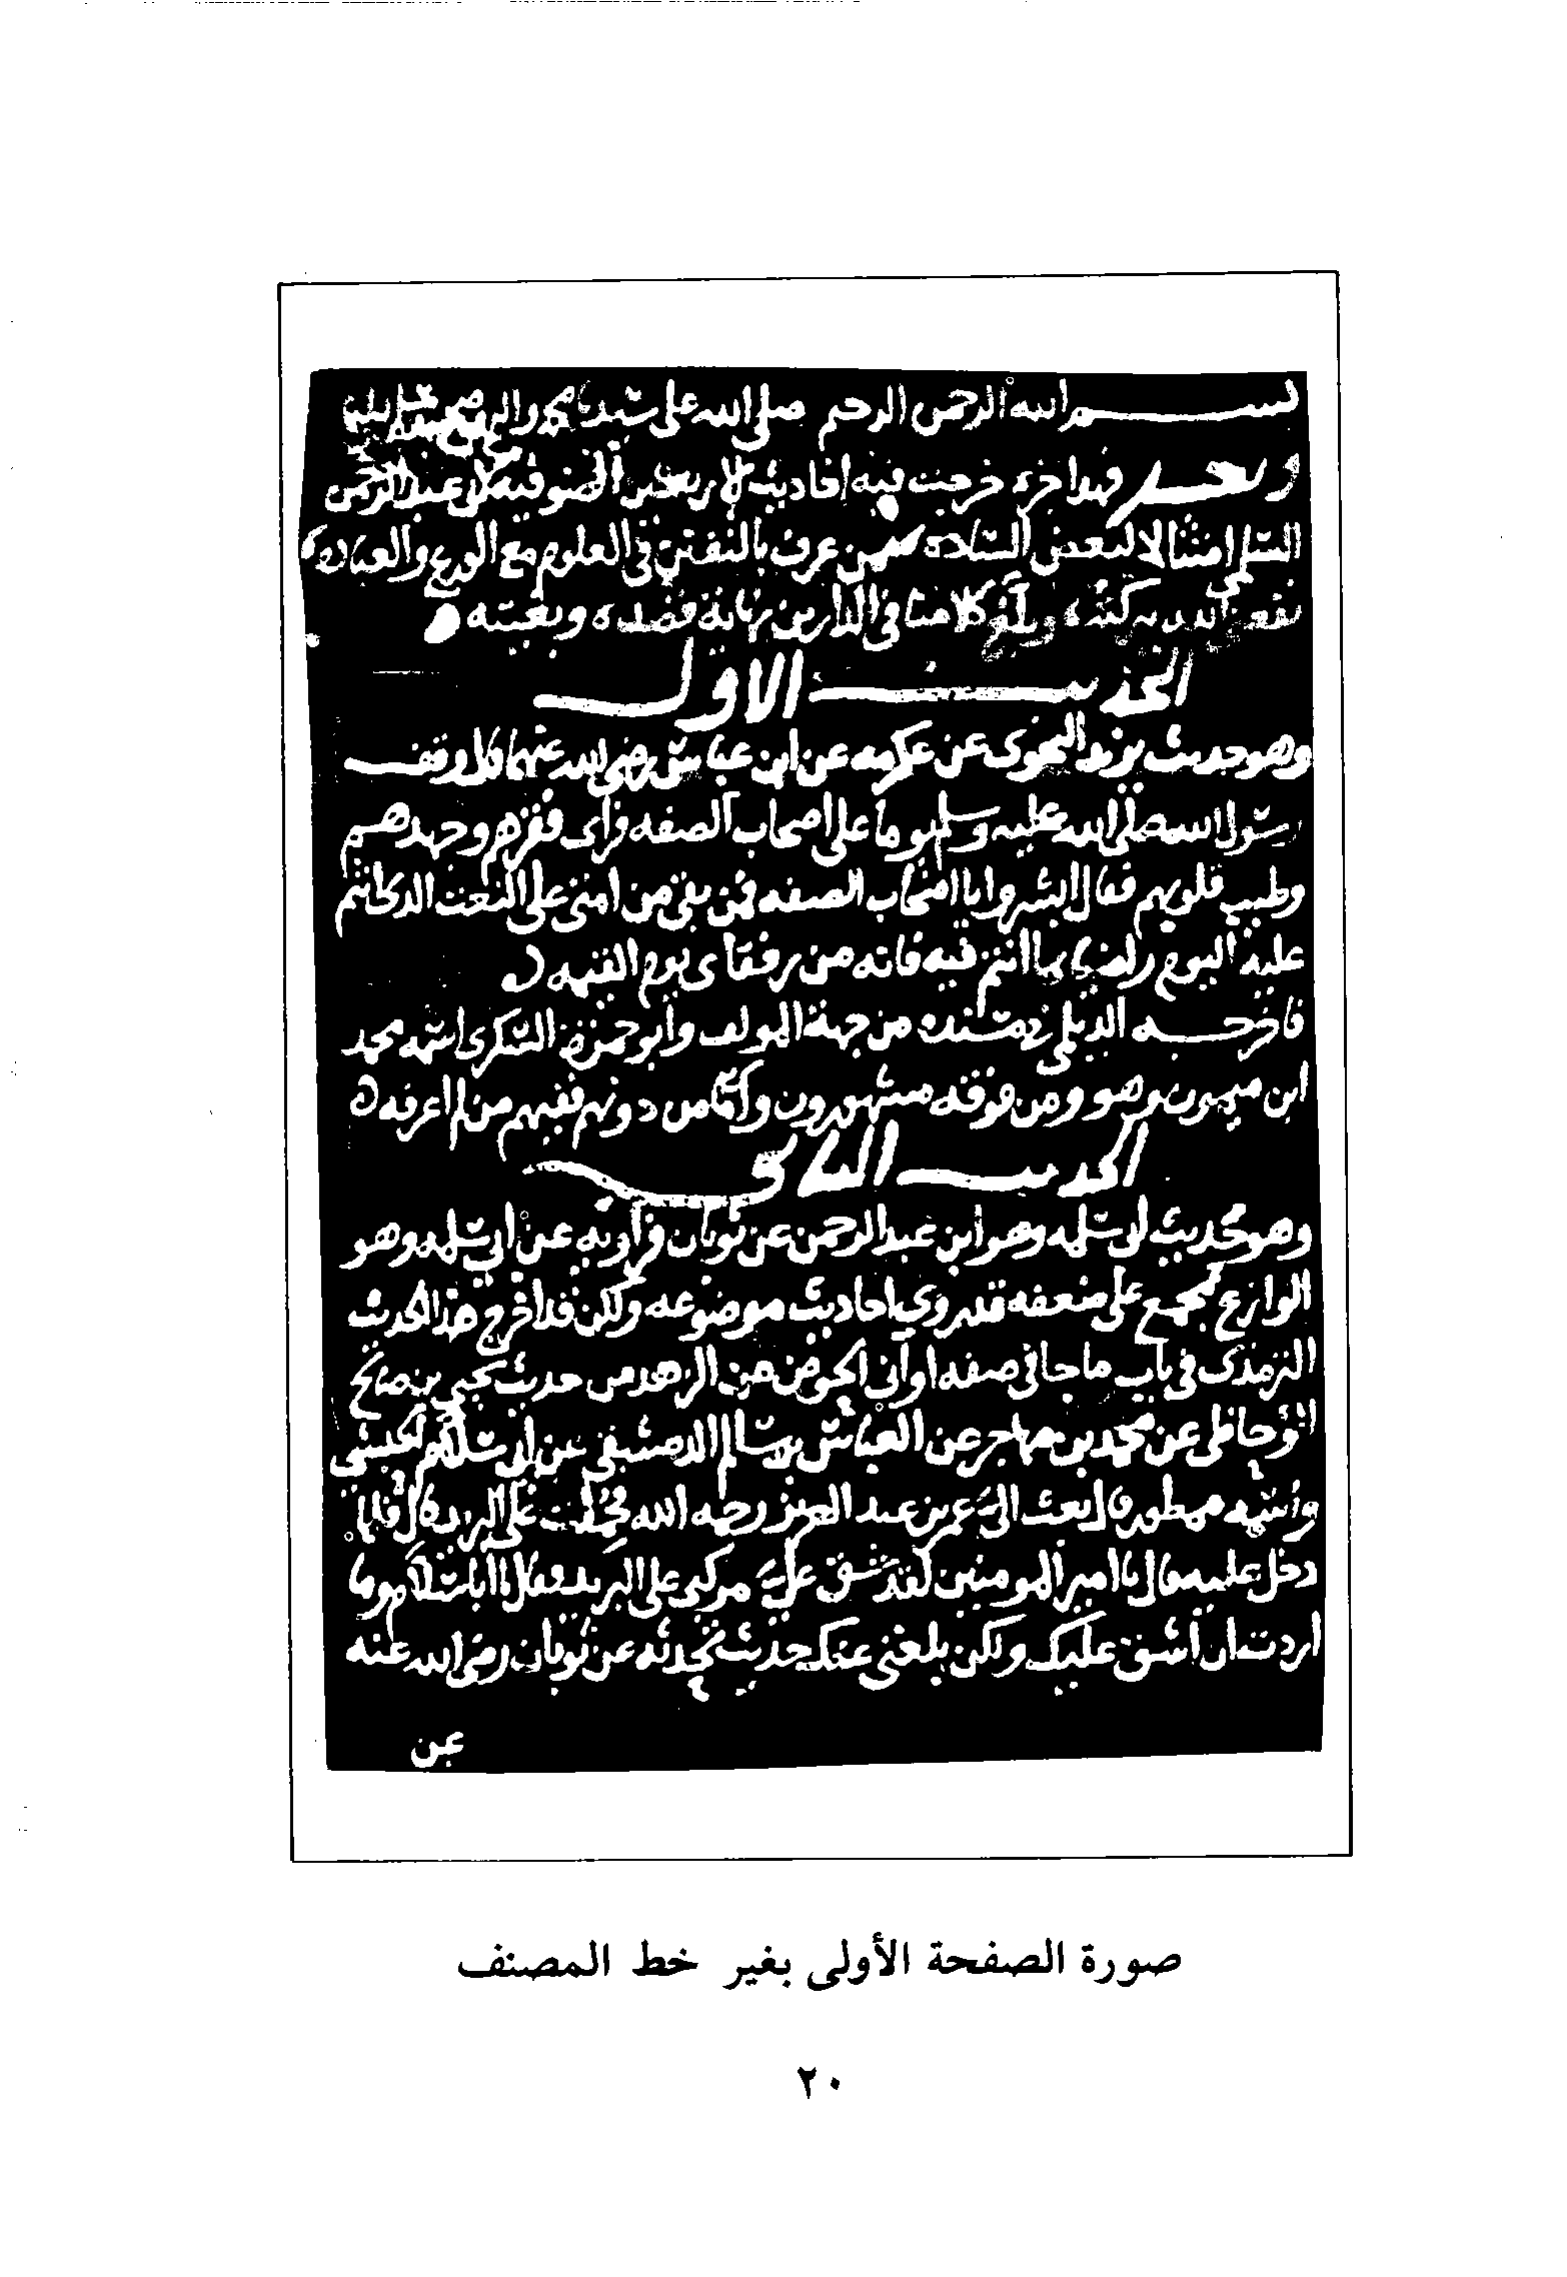 بســـم الله الرحمن الرحيم صلى الله على سيدنا محمد واله وصحبه
وبعـــد فهذا جزء خرجت فيه احاديث الاربعين الصوفيه لابى عبد الرحمن
السلمى امتثالا لبعض الساده ممن عرف بالتفنن فى العلوم مع الورع والعباده
نفع الله به كنفه وبلغ كلا منا فى الدارين نهاية قصده وبغيته
الحديث الاول
وهو حديث يزيد النحوى عن عكرمه عن ابن عباس رضى الله عنهما قال وقف
رسول الله صلى الله عليه وسلم يوما على اصحاب الصفه فراى فقرهم وجهدهم
وطيب قلوبهم فقال ابشروا يا اصحاب الصفه فمن بقى من امتى على النعت الذى انتم
عليه اليوم راضيا بما انتم فيه فانه من رفقاى يوم القيمه
فاخرجه الديلمى فى مسنده من جهة المولف وابو حمزة السكرى اسمه محمد
ابن ميمون وهو ومن فوقه مشهورون واما من دونهم ففيهم من لم اعرفه
الحديث الثانى
وهو حديث ابى سلمه وهو ابن عبد الرحمن عن ثوبان فراويه عن ابى سلمه وهو
الوازع مجمع على ضعفه قد روى احاديث موضوعه ولكن قد اخرج هذا الحديث
الترمذى فى باب ما جا فى صفه اوانى الحوض من الزهد من حديث يحيى بن صالح
الوحاظى عن محمد بن مهاجر عن العباس بن سالم الدمشقى عن ابى سلام الحبشى
واسمه ممطور قال بعث الىّ عمر بن عبد العزيز رحمه الله فحملت على البريد قال فلما
دخل عليه قال يا امير المومنين لقد شق علىّ مركبى على البريد فقال يا ابا سلام وما
اردت ان اشق عليك ولكن بلغنى عنك حديث تحدثه عن ثوبان رضى الله عنه
عن
صورة الصفحة الأولى بغير خط المصنف
٢٠